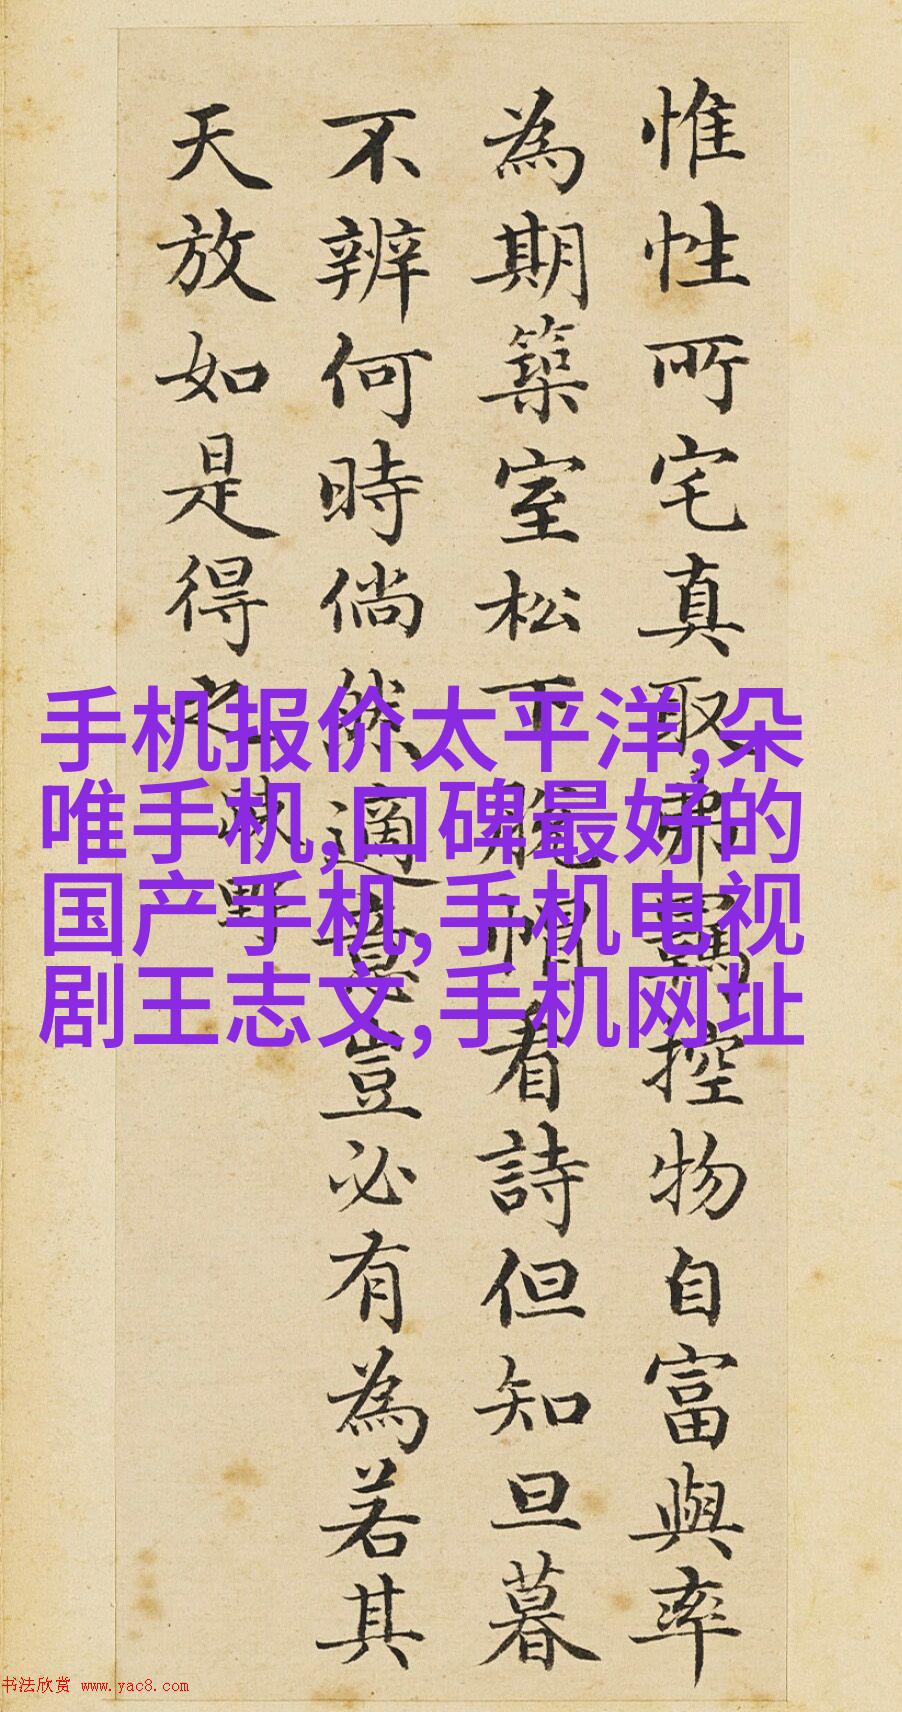 惟性所宅真取弗羈控物自富與率
為期築室松下脫帽看詩但知旦暮
不辨何時倘然適意豈必有為若其
天放如是得之疎野
手机报价太平洋,朵
唯手机,口碑最好的
国产手机,手机电视
剧王志文,手机网址
书法欣赏 www.yac8.com